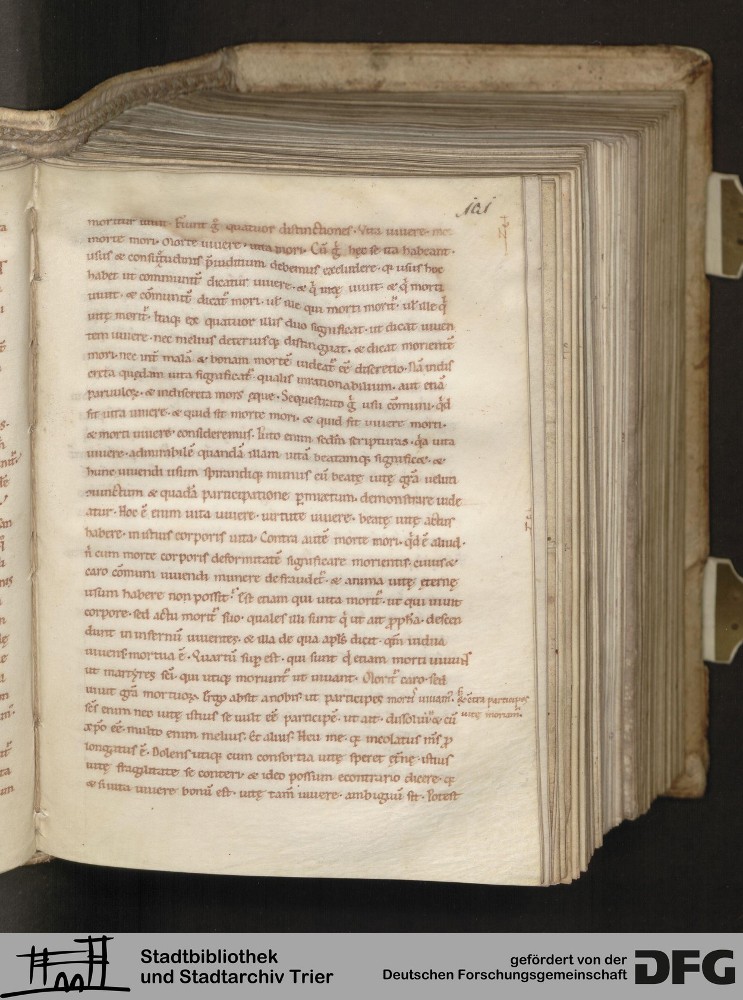 101
moritur uiuit. Erunt g̃ quatuor distinctiones. Vita uiuere. me
morte mori. Morte uiuere. uita mori. Cũ g̃ hec se ita habeant.
usus & consuetudinis p̃iudicium debemus excludere. q usus hoc
habet ut communit̃ dicatur uiuere. & q̃ uitę uiuit. & q̃ morti
uiuit. & cõmunit̃ dicat̃ mori. ul̃ ille qui morti morit̃. ul̃ ille q̃
uitę morit̃. Itaq; ex quatuor illis duo significat. ut dicat uiuen
tem uiuere. nec melius deteriusq; distinguat. & dicat morientẽ
mori. nec int̃ malã & bonam mortẽ uideat̃ eẽ discretio. Nã indis
creta quędam uita significat̃. qualis irrationabilium. aut etiã
paruuloꝝ. & indiscreta mors ęque. Sequestrato g̃ usu cõmuni. q̃d
sit uita uiuere. & quid sit morte mori. & quid sit uiuere morti.
& morti uiuere. consideremus. Puto enim sedm̃ scripturas. q̃a uita
uiuere. admirabilẽ quandã illam uitã beatamq; significet. &
hunc uiuendi usum spirandiq; munus cũ beatę uitę gr̃a uelut
mixtum & quadã participatione p̱mixtum. demonstrare uide
atur. Hoc ẽ enim uita uiuere. uirtute uiuere. beatę uitę actus
habere. in istius corporis uita. Contra autẽ morte mori. q̃d ẽ aliud.
ñ cum morte corporis deformitatẽ significare morientis. cuius &
caro cõmuni uiuendi munere defraudet̃. & anima uitę eternę
usum habere non possit? Est etiam qui uita morit̃. ut qui uiuit
corpore. sed actu morit̃ suo. quales illi sunt q̃ ut ait p̱pħa. descen
dunt in infernũ uiuentes. & illa de qua apl̃s dicit. qm̃ indiui
uiuens mortua ẽ. Quartũ sup̱est. qui sunt q̃ etiam morti uiuunt
ut martyres sc̃i. qui utiq; moriunt̃ ut uiuant. Morit̃ caro. sed
uiuit gr̃a mortuoꝝ. Ergo absit a nobis ut participes morti uiuam̃.
& cõtra participes
uitę moriam̃.
sc̃s enim nec uitę istius se uult eẽ participẽ. ut ait. dissolui & cũ
xp̃o eẽ. multo enim melius. Et alius. Heu me. q incolatus m̃s p̱
longatus ẽ. Dolens utiq; cum consortia uitę speret et̃nę. istius
uitę fragilitate se conteri. & ideo possum econtrario dicere. q
& si uita uiuere bonũ est. uitę tam̃ uiuere. ambiguũ sit. Potest
Stadtbibliothek
und Stadtarchiv Trier
gefördert von der
Deutschen Forschungsgemeinschaft
DFG